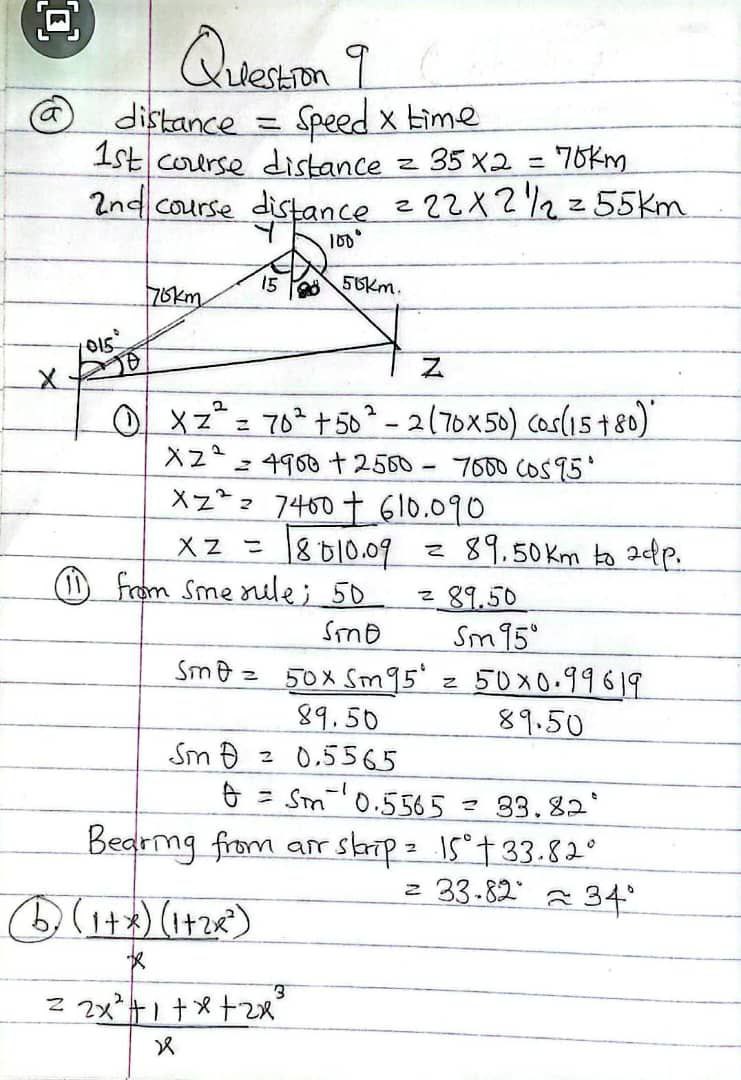 Question 9
(a) distance = Speed x time
1st course distance = 35 x 2 = 70km
2nd course distance = 22 x 2 1/2 = 55km
Y 100°
70km 15 80 50km.
015°
X θ Z
(i) XZ² = 70² + 50² - 2(70x50) cos(15+80)°
XZ² = 4900 + 2500 - 7000 cos95°
XZ² = 7400 + 610.090
XZ = √8010.09 = 89.50km to 2dp.
(ii) from Sine rule; 50/Sinθ = 89.50/Sin95°
Sinθ = 50 x Sin95°/89.50 = 50x0.99619/89.50
Sin θ = 0.5565
θ = Sin⁻¹ 0.5565 = 33.82°
Bearing from air strip = 15° + 33.82°
= 33.82° ≈ 34°
(b) (1+x)(1+2x²)/x
= 2x²+1+x+2x³/x